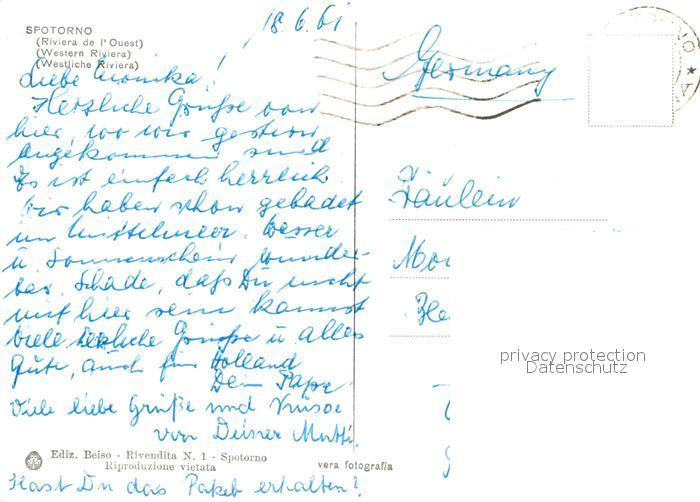 18.6.61
SPOTORNO
(Riviera de l'Ouest)
(Western Riviera)
(Westliche Riviera)
Liebe Monika!
Herzliche Grüße von
hier, wo wir gestern
angekommen sind
Es ist einfach herrlich
wir haben schon gebadet
im Mittelmeer. Wasser
u Sonnenschein wunder-
bar. Schade, daß Du nicht
mit hier sein kannst
Viele herzliche Grüße u alles
Gute, auch für Holland
Dein Papa
Viele liebe Grüße und Küsse
von Deiner Mutti.
Ediz. Beiso - Rivendita N. 1 - Spotorno
Riproduzione vietata
vera fotografia
Hast Du das Paket erhalten?
Germany
Fräulein
Mo
privacy protection
Datenschutz